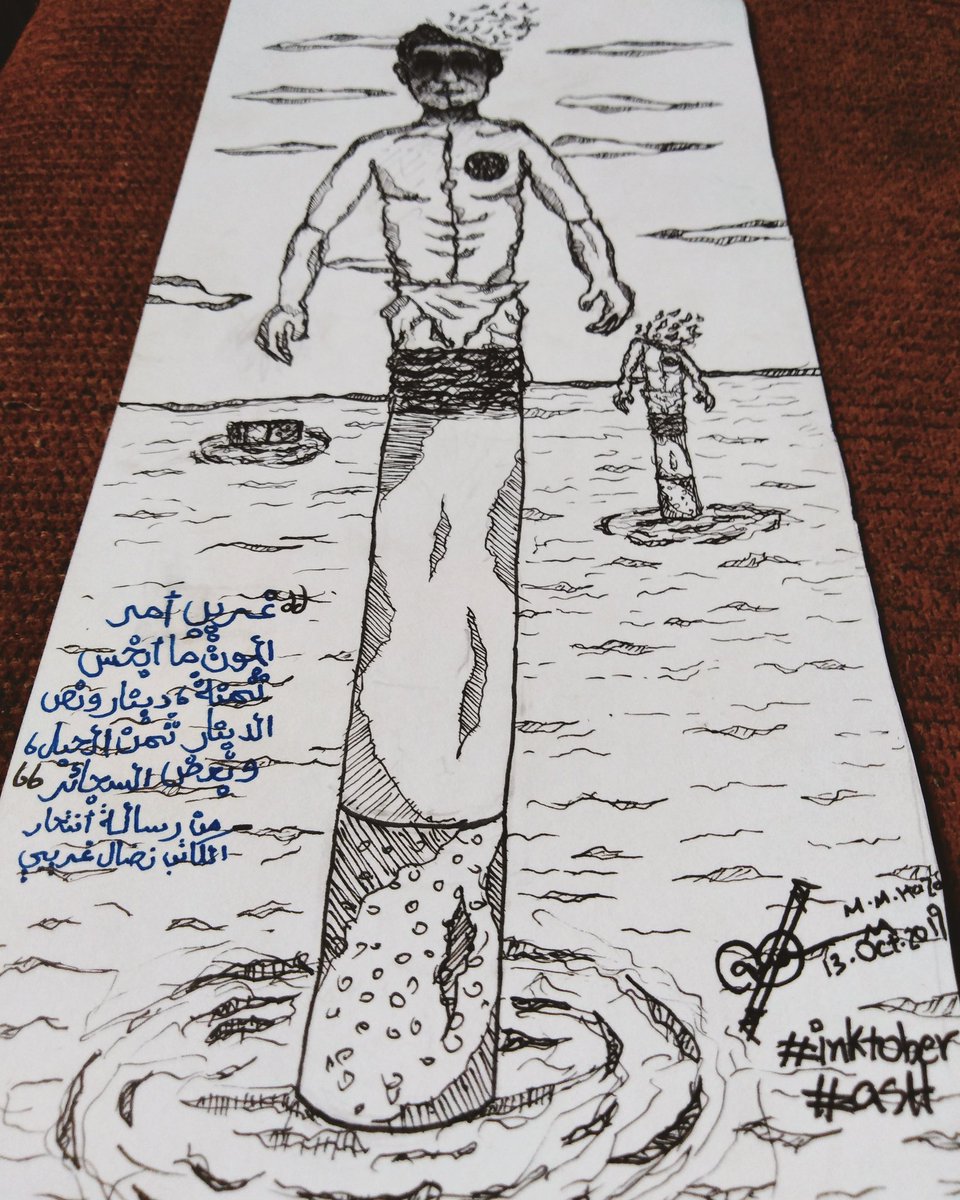 "غريب أمر
الموت ما أبخس
ثمنة، دينار ونص
الدينار ثمن الحبل،
وبعض السجائر"
من رسالة أنتحار
الكاتب نضال غريبي
13.Oct.2019
#inktober
#ash